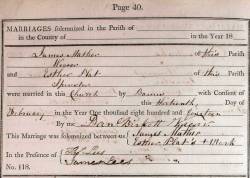 Page 40.
MARRIAGES solemnized in the Parish of
in the County of in the Year 18
James Mather of this Parish
Weaver
and Esther Plat of this Parish
Spinster
were married in this Church by Banns with Consent of
this thirteenth Day of
February in the Year One thousand eight hundred and fourteen
By Dan Birkett
This Marriage was solemnized between us James Mather
Esther Plat's + Mark
In the Presence of Lees
James Lees
No. 118.